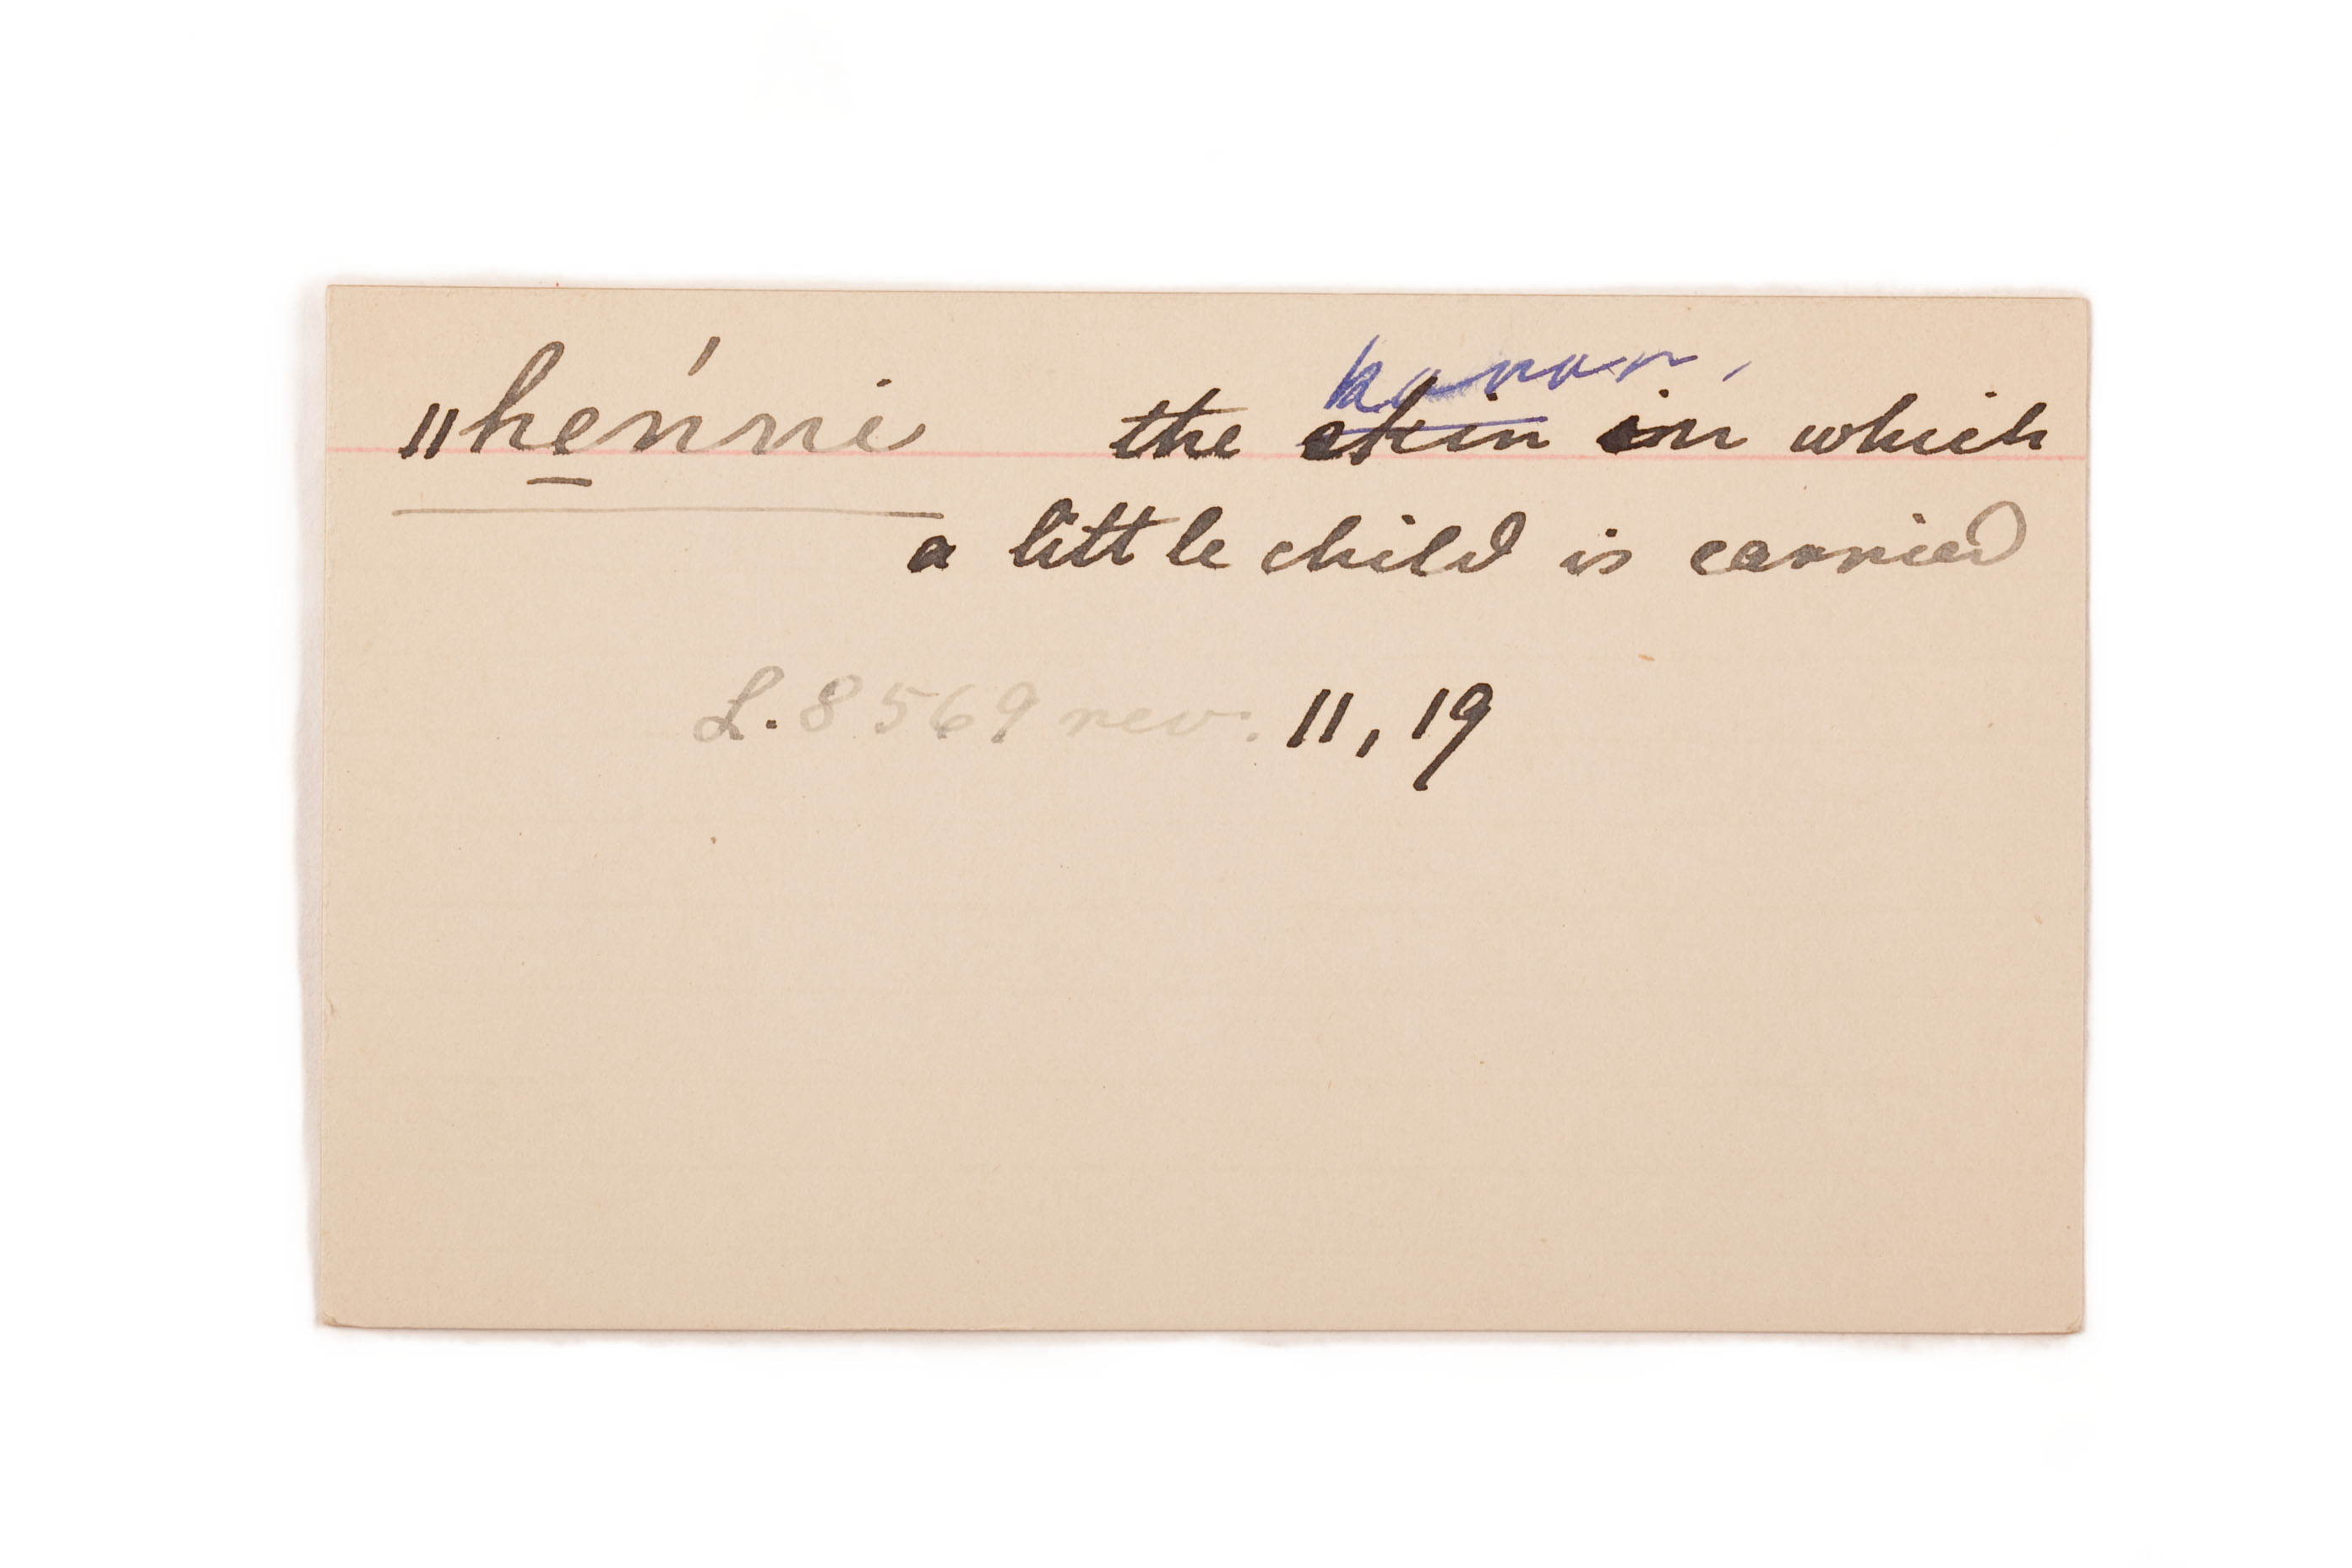 ǁhe̱ńni the skin in which
a little child is carried
L. 8569 rev. 11, 19